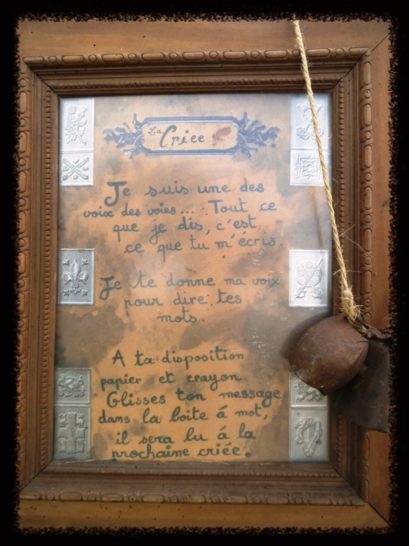 La Criée
Je suis une des
voix des voies... Tout ce
que je dis, c'est
ce que tu m'écris
Je te donne ma voix
pour dire tes
mots.
A ta disposition
papier et crayon.
Glisses ton message
dans la boite à mot,
il sera lu à la
prochaine criée.